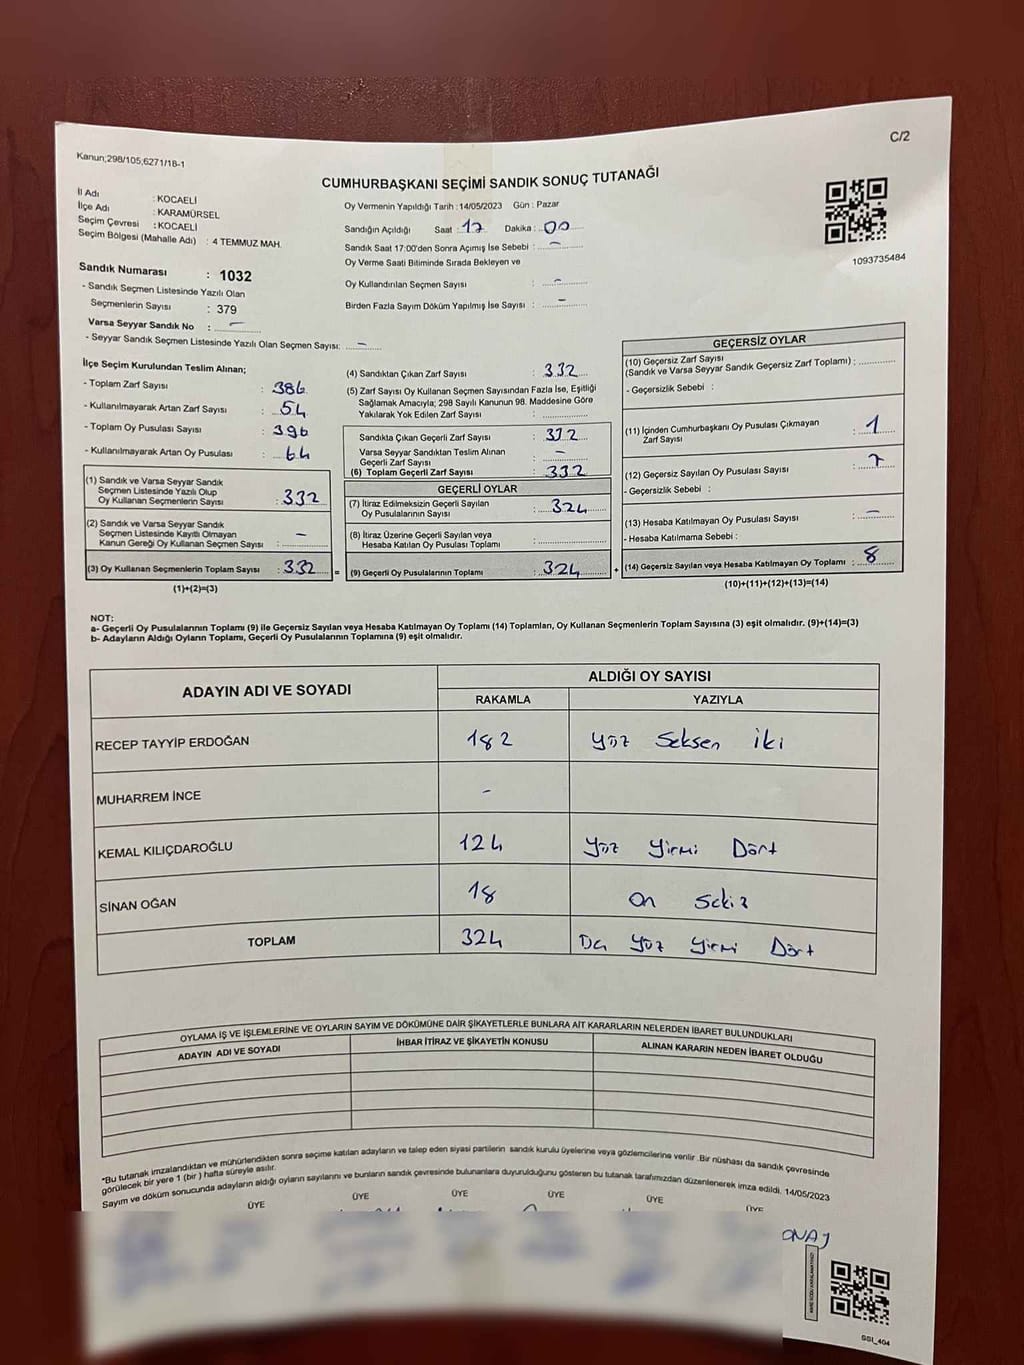 C/2
Kanun;298/105;6271/18-1
CUMHURBAŞKANI SEÇİMİ SANDIK SONUÇ TUTANAĞI
İl Adı : KOCAELİ
İlçe Adı : KARAMÜRSEL
Seçim Çevresi : KOCAELİ
Seçim Bölgesi (Mahalle Adı) : 4 TEMMUZ MAH.
Sandık Numarası : 1032
- Sandık Seçmen Listesinde Yazılı Olan
Seçmenlerin Sayısı : 379
Varsa Seyyar Sandık No : -
- Seyyar Sandık Seçmen Listesinde Yazılı Olan Seçmen Sayısı: -
Oy Vermenin Yapıldığı Tarih : 14/05/2023 Gün : Pazar
Sandığın Açıldığı Saat : 17 Dakika : 00
Sandık Saat 17:00'den Sonra Açımış İse Sebebi : -
Oy Verme Saati Bitiminde Sırada Bekleyen ve
Oy Kullandırılan Seçmen Sayısı : -
Birden Fazla Sayım Döküm Yapılmış İse Sayısı : -
1093735484
İlçe Seçim Kurulundan Teslim Alınan;
- Toplam Zarf Sayısı : 386
- Kullanılmayarak Artan Zarf Sayısı : 54
- Toplam Oy Pusulası Sayısı : 396
- Kullanılmayarak Artan Oy Pusulası : 64
(1) Sandık ve Varsa Seyyar Sandık
Seçmen Listesinde Yazılı Olup
Oy Kullanan Seçmenlerin Sayısı : 332
(2) Sandık ve Varsa Seyyar Sandık
Seçmen Listesinde Kayıtlı Olmayan
Kanun Gereği Oy Kullanan Seçmen Sayısı : -
(3) Oy Kullanan Seçmenlerin Toplam Sayısı : 332 =
(1)+(2)=(3)
(4) Sandıktan Çıkan Zarf Sayısı : 332
(5) Zarf Sayısı Oy Kullanan Seçmen Sayısından Fazla İse, Eşitliği
Sağlamak Amacıyla; 298 Sayılı Kanunun 98. Maddesine Göre
Yakılarak Yok Edilen Zarf Sayısı :
Sandıkta Çıkan Geçerli Zarf Sayısı : 332
Varsa Seyyar Sandıktan Teslim Alınan
Geçerli Zarf Sayısı : -
(6) Toplam Geçerli Zarf Sayısı : 332
GEÇERLİ OYLAR
(7) İtiraz Edilmeksizin Geçerli Sayılan
Oy Pusulalarının Sayısı : 324
(8) İtiraz Üzerine Geçerli Sayılan veya
Hesaba Katılan Oy Pusulası Toplamı :
(9) Geçerli Oy Pusulalarının Toplamı : 324 +
GEÇERSİZ OYLAR
(10) Geçersiz Zarf Sayısı
(Sandık ve Varsa Seyyar Sandık Geçersiz Zarf Toplamı) :
- Geçersizlik Sebebi :
(11) İçinden Cumhurbaşkanı Oy Pusulası Çıkmayan
Zarf Sayısı : 1
(12) Geçersiz Sayılan Oy Pusulası Sayısı : 7
- Geçersizlik Sebebi :
(13) Hesaba Katılmayan Oy Pusulası Sayısı : -
- Hesaba Katılmama Sebebi :
(14) Geçersiz Sayılan veya Hesaba Katılmayan Oy Toplamı : 8
(10)+(11)+(12)+(13)=(14)
NOT:
a- Geçerli Oy Pusulalarının Toplamı (9) ile Geçersiz Sayılan veya Hesaba Katılmayan Oy Toplamı (14) Toplamları, Oy Kullanan Seçmenlerin Toplam Sayısına (3) eşit olmalıdır. (9)+(14)=(3)
b- Adayların Aldığı Oyların Toplamı, Geçerli Oy Pusulalarının Toplamına (9) eşit olmalıdır.
ADAYIN ADI VE SOYADI
ALDIĞI OY SAYISI
RAKAMLA YAZIYLA
RECEP TAYYİP ERDOĞAN 182 yüz Seksen iki
MUHARREM İNCE -
KEMAL KILIÇDAROĞLU 124 yüz yirmi Dört
SİNAN OĞAN 18 on sekiz
TOPLAM 324 yüz yirmi Dört
OYLAMA İŞ VE İŞLEMLERİNE VE OYLARIN SAYIM VE DÖKÜMÜNE DAİR ŞİKAYETLERLE BUNLARA AİT KARARLARIN NELERDEN İBARET BULUNDUKLARI
ADAYIN ADI VE SOYADI İHBAR İTİRAZ VE ŞİKAYETİN KONUSU ALINAN KARARIN NEDEN İBARET OLDUĞU
*Bu tutanak imzalandıktan ve mühürlendikten sonra seçime katılan adayların ve talep eden siyasi partilerin sandık kurulu üyelerine veya gözlemcilerine verilir .Bir nüshası da sandık çevresinde
görülecek bir yere 1 (bir ) hafta süreyle asılır.
Sayım ve döküm sonucunda adayların aldığı oyların sayılarını ve bunların sandık çevresinde bulunanlara duyurulduğunu gösteren bu tutanak tarafımızdan düzenlenerek imza edildi. 14/05/2023
ÜYE ÜYE ÜYE ÜYE ÜYE ÜYE
SSI_404